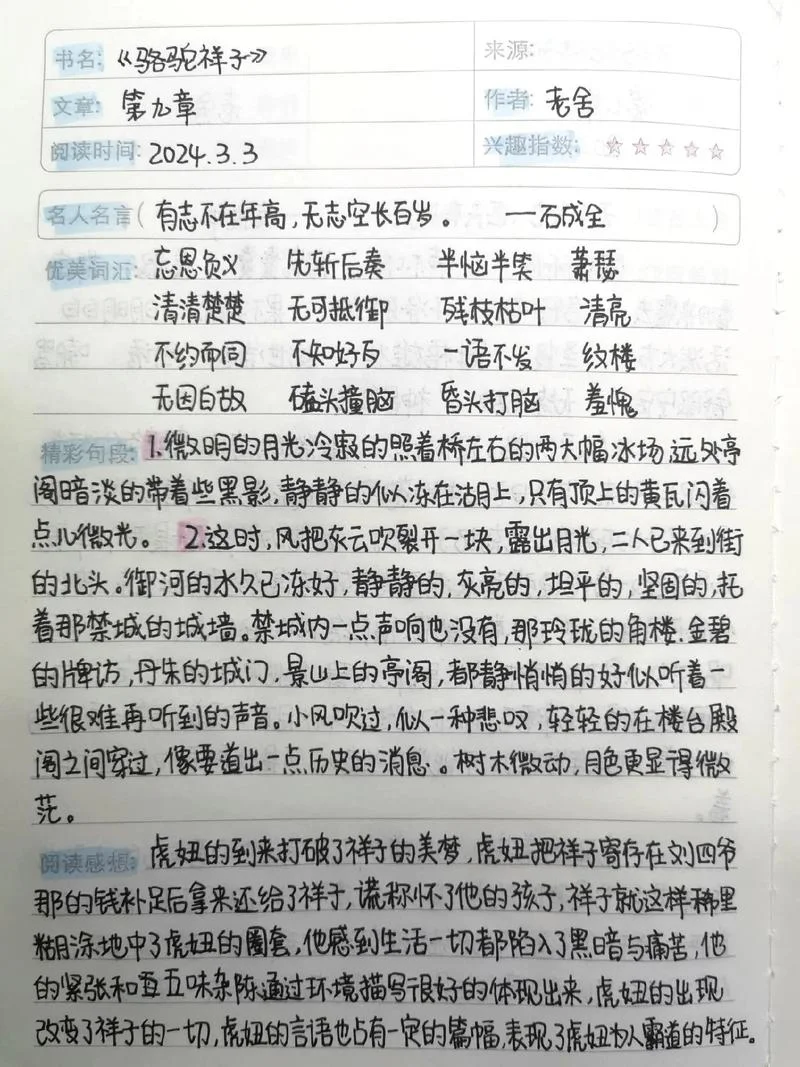 书名: 《骆驼祥子》 来源:
文章: 第九章 作者: 老舍
阅读时间: 2024.3.3 兴趣指数: ☆☆☆☆☆
名人名言( 有志不在年高,无志空长百岁。 ——石成金 )
优美词汇: 忘恩负义 先斩后奏 半恼半笑 萧瑟
清清楚楚 无可抵御 残枝枯叶 清亮
不约而同 不知好歹 一语不发 纹楼
无因白故 磕头撞脑 昏头打脑 羞愧
精彩句段: 1.微明的月光冷寂的照着桥左右的两大幅冰场,远处亭
阁暗淡的带着些黑影,静静的似冻在湖上,只有顶上的黄瓦闪着
点儿微光。 2.这时,风把灰云吹裂开一块,露出月光,二人已来到街
的北头。御河的水久已冻好,静静的,灰亮的,坦平的,坚固的,托
着那禁城的城墙。禁城内一点声响也没有,那玲珑的角楼.金碧
的牌访,丹朱的城门,景山上的亭阁,都静悄悄的好似听着一
些很难再听到的声音。小风吹过,似一种悲叹,轻轻的在楼台殿
阁之间穿过,像要道出一点历史的消息。树木微动,月色更显得微
茫。
阅读感想: 虎妞的到来打破了祥子的美梦,虎妞把祥子寄存在刘四爷
那的钱补足后拿来还给了祥子,谎称怀了他的孩子,祥子就这样稀里
糊涂地中了虎妞的圈套,他感到生活一切都陷入了黑暗与痛苦,他
的紧张和五味杂陈通过环境描写很好的体现出来,虎妞的出现
改变了祥子的一切,虎妞的言语也占有一定的篇幅,表现了虎妞为人霸道的特征。